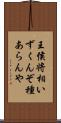 王侯将相い
ずくんぞ種
あらんや